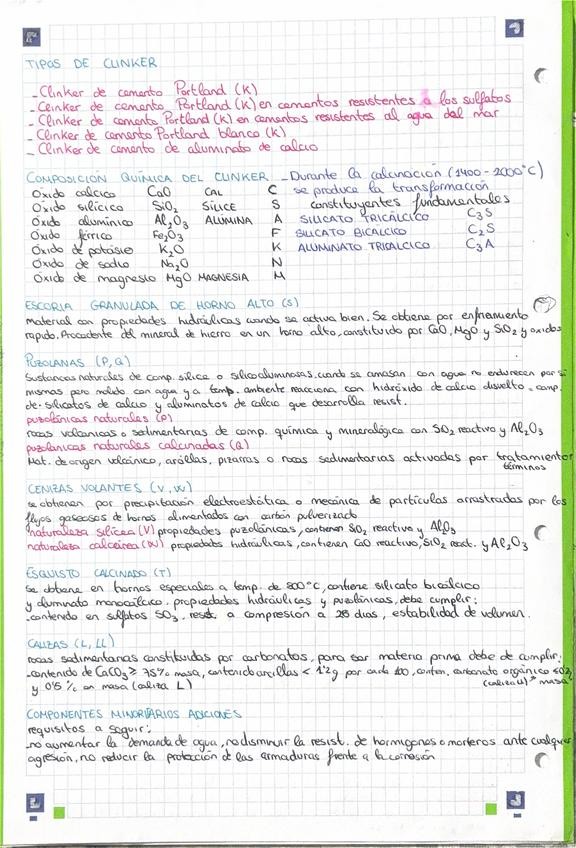 TIPOS DE CLINKER
- Clinker de cemento Portland (K)
- Clinker de cemento Portland (K) en cementos resistentes a los sulfatos
- Clinker de cemento Portland (K) en cementos resistentes al agua del mar
- Clinker de cemento Portland blanco (K)
- Clinker de cemento de aluminato de calcio
COMPOSICIÓN QUÍMICA DEL CLINKER - Durante la calcinación (1400 - 2000°C)
Óxido cálcico CaO CAL C se produce la transformación
Óxido silícico SiO2 SÍLICE S constituyentes fundamentales
Óxido alumínico Al2O3 ALÚMINA A SILICATO TRICÁLCICO C3S
Óxido férrico Fe2O3 F SILICATO BICÁLCICO C2S
Óxido de potasio K2O K ALUMINATO TRICÁLCICO C3A
Óxido de sodio Na2O N
Óxido de magnesio MgO MAGNESIA M
ESCORIA GRANULADA DE HORNO ALTO (S)
material con propiedades hidráulicas cuando se activa bien. Se obtiene por enfriamiento
rapido. Procedente del mineral de hierro en un horno alto, constituido por CaO, MgO y SiO2 y oxidos
PUZOLANAS (P, Q)
Sustancias naturales de comp. silice o silicoaluminosas, cuando se amasan con agua no endurecen por si
mismas pero molido con agua y a temp. ambiente reacciona con hidróxido de calcio disuelto = comp.
de silicatos de calcio y aluminatos de calcio que desarrolla resist.
puzolánicas naturales (P)
rocas volcanicas o sedimentarias de comp. química y mineralógica con SiO2 reactivo y Al2O3
puzolanicas naturales calcinadas (Q)
Mat. de origen volcánico, arcillas, pizarras o rocas sedimentarias activadas por tratamientos
térmicos
CENIZAS VOLANTES (V, W)
se obtienen por precipitación electroestática o mecánica de partículas arrastradas por los
flujos gaseosos de hornos alimentados con carbón pulverizado
naturaleza silícea (V) propiedades puzolánicas, contienen SiO2 reactivo y Al2O3
naturaleza calcárea (W) propiedades hidráulicas, contienen CaO reactivo, SiO2 react. y Al2O3
ESQUISTO CALCINADO (T)
se obtiene en hornos especiales a temp. de 800°C, contiene silicato bicálcico
y aluminato monocálcico. propiedades hidráulicas y puzolánicas, debe cumplir:
contenido en sulfatos SO3, resist. a compresión a 28 dias, estabilidad de volumen.
CALIZAS (L, LL)
rocas sedimentarias constituidas por carbonatos, para ser materia prima debe de cumplir:
-contenido de CaCO3 ≥ 75% masa, contenido arcillas < 1'2g por cada 100, conten. carbonato orgánico ≤0'2
y 0'5 % en masa (caliza L) (caliza LL) masa
COMPONENTES MINORITARIOS ADICIONES
requisitos a seguir:
-no aumentar la demanda de agua, no disminuir la resist. de hormigones o morteros ante cualquier
agresión, no reducir la protección de las armaduras frente a la corrosión